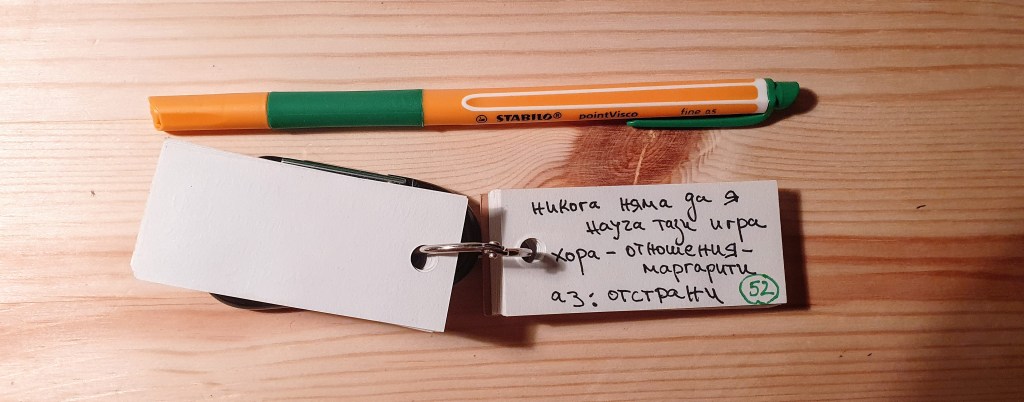 STABILO® pointVisco fine 0.5
никога няма да я
науча тази игра
хора - отношения -
маргарити
аз: отстрани 52